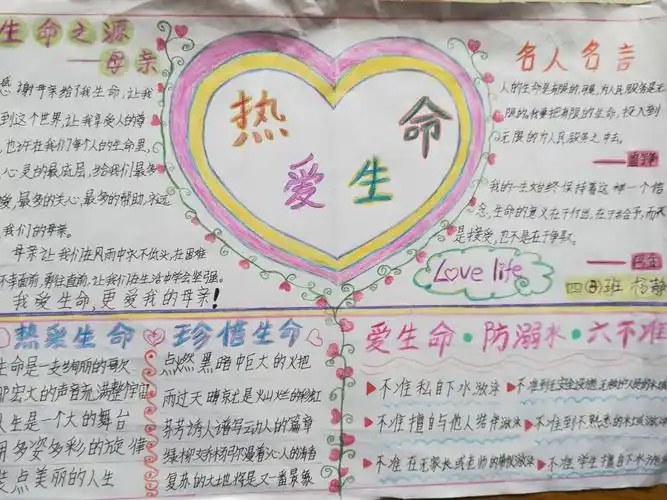 生命之源
——母亲
感谢母亲给了我生命,让我
到这个世界,让我享受人间
也许在我们每个人的生命里,
心灵的最底层,给我们最多
爱,最多的关心,最多的帮助,永远
我们的母亲。
母亲让我们在风雨中永不低头,在困难
面前,勇往直前,让我们在生活中学会坚强。
我爱生命,更爱我的母亲!
热爱生命
名人名言
人的生命是有限的,可是,为人民服务是无
限的,我要把有限的生命,投入到
无限的为人民服务之中去。
——雷锋
我的一生始终保持着这样一个信
念,生命的意义在于付出,在于给予,而不
是接受,也不是在于争取。
——巴金
Love life
四 班 杨静
热爱生命
生命是一支绚丽的歌
那宏大的声音充满整个宇宙
人生是一个大的舞台
用多姿多彩的旋律
装点美丽的人生
珍惜生命
点燃黑暗中巨大的火把
雨过天晴就是灿烂的彩虹
芬芳诱人谱写动人的篇章
复苏的大地将是又一番景象
爱生命·防溺水·六不准
不准私自下水游泳
不准擅自与他人结伴游泳
不准到不熟悉的水域游泳
不准在无家长或老师的带领游泳
不准学生擅自下水